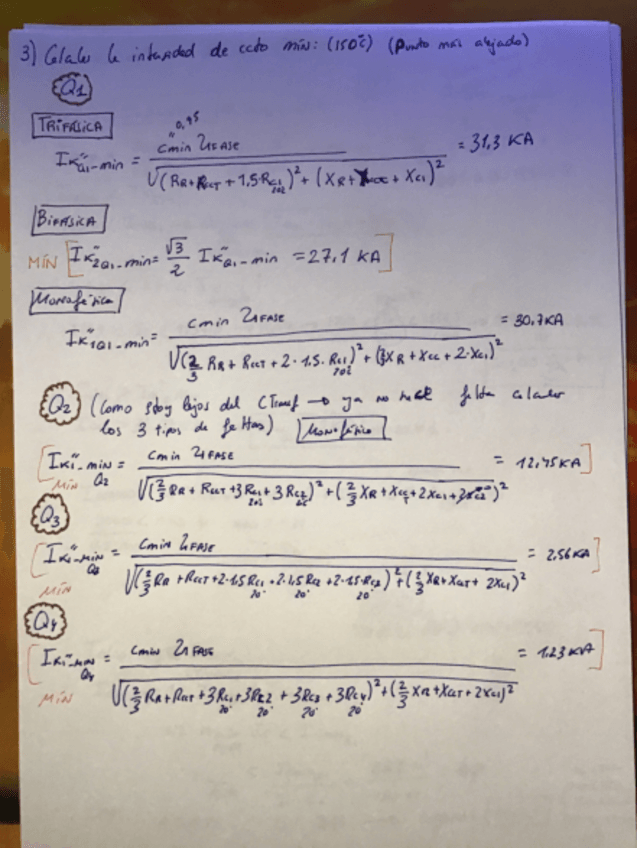 3) Calcular la intensidad de ccto mín: (150ºC) (Punto mas alejado)
Q1
TRIFÁSICA
"0,95
IK"Q1-min = cmin U1FASE / √((RR+RccT + 1,5·RC1 20º)² + (XR+Xcc + XC1)²) = 31,3 KA
BIFÁSICA
MÍN [IK"2Q1-min = √3/2 IK"Q1-min = 27,1 KA]
Monofásica
IK"1Q1-min = cmin U1FASE / √((2/3 RR + RccT + 2·1.5·RC1 20º)² + (2/3 XR + Xcc + 2·XC1)²) = 30,7KA
Q2 (Como estoy lejos del CTransf → ya no hace falta calcular
los 3 tipos de faltas) Monofásico
[IK1"-MIN Q2 = cmin U1FASE / √((2/3 RR + RccT +3RC1 20º + 3RC2 20º)² + (2/3 XR + XccT + 2XC1 +)²) = 12,45KA]
MÍN
Q3
[IK1"-MIN Q3 = cmin U1FASE / √((2/3 RR + RccT + 2·1.5 RC1 20º + 2·1,5 RC2 20º + 2·1.5·RC3 20º)² + (2/3 XR + XccT + 2XC1)²) = 2,56 KA]
MÍN
Q4
[IK1"-MIN Q4 = cmin U1FASE / √((2/3 RR + RccT + 3RC1 20º + 3RC2 20º + 3RC3 20º + 3RC4 20º)² + (2/3 XR + XccT + 2XC1)²) = 1.23 KA]
MÍN